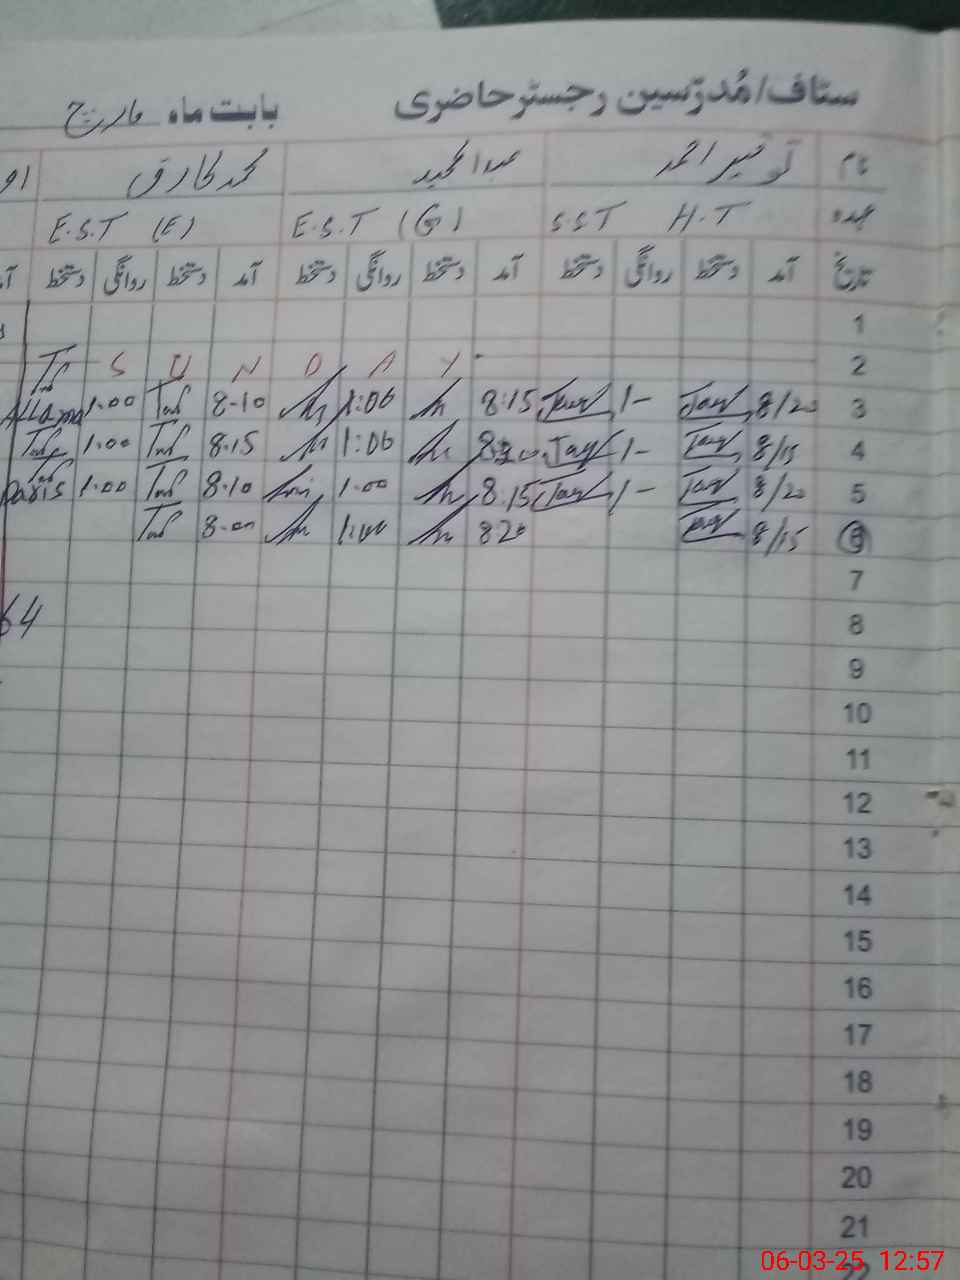 ستاف/مُدرّسین رجسٹر حاضری بابت ماہ مارچ
نام توقیر احمد عبدالمجید محمد طارق
عہدہ S.S.T H.T E.S.T (G) E.S.T (E)
تاریخ آمد دستخط روانگی دستخط آمد دستخط روانگی دستخط آمد دستخط روانگی دستخط
1
2 S U N D A Y
3 8/20 1- 8:15 1:00 8-10 1.00
4 8/15 1- 1:00 8.15 1.00
5 8/20 1- 8.15 1.00 8.10 1.00
6 8/15 820 1:00 8.00
7
64
8
9
10
11
12
13
14
15
16
17
18
19
20
21
06-03-25 12:57